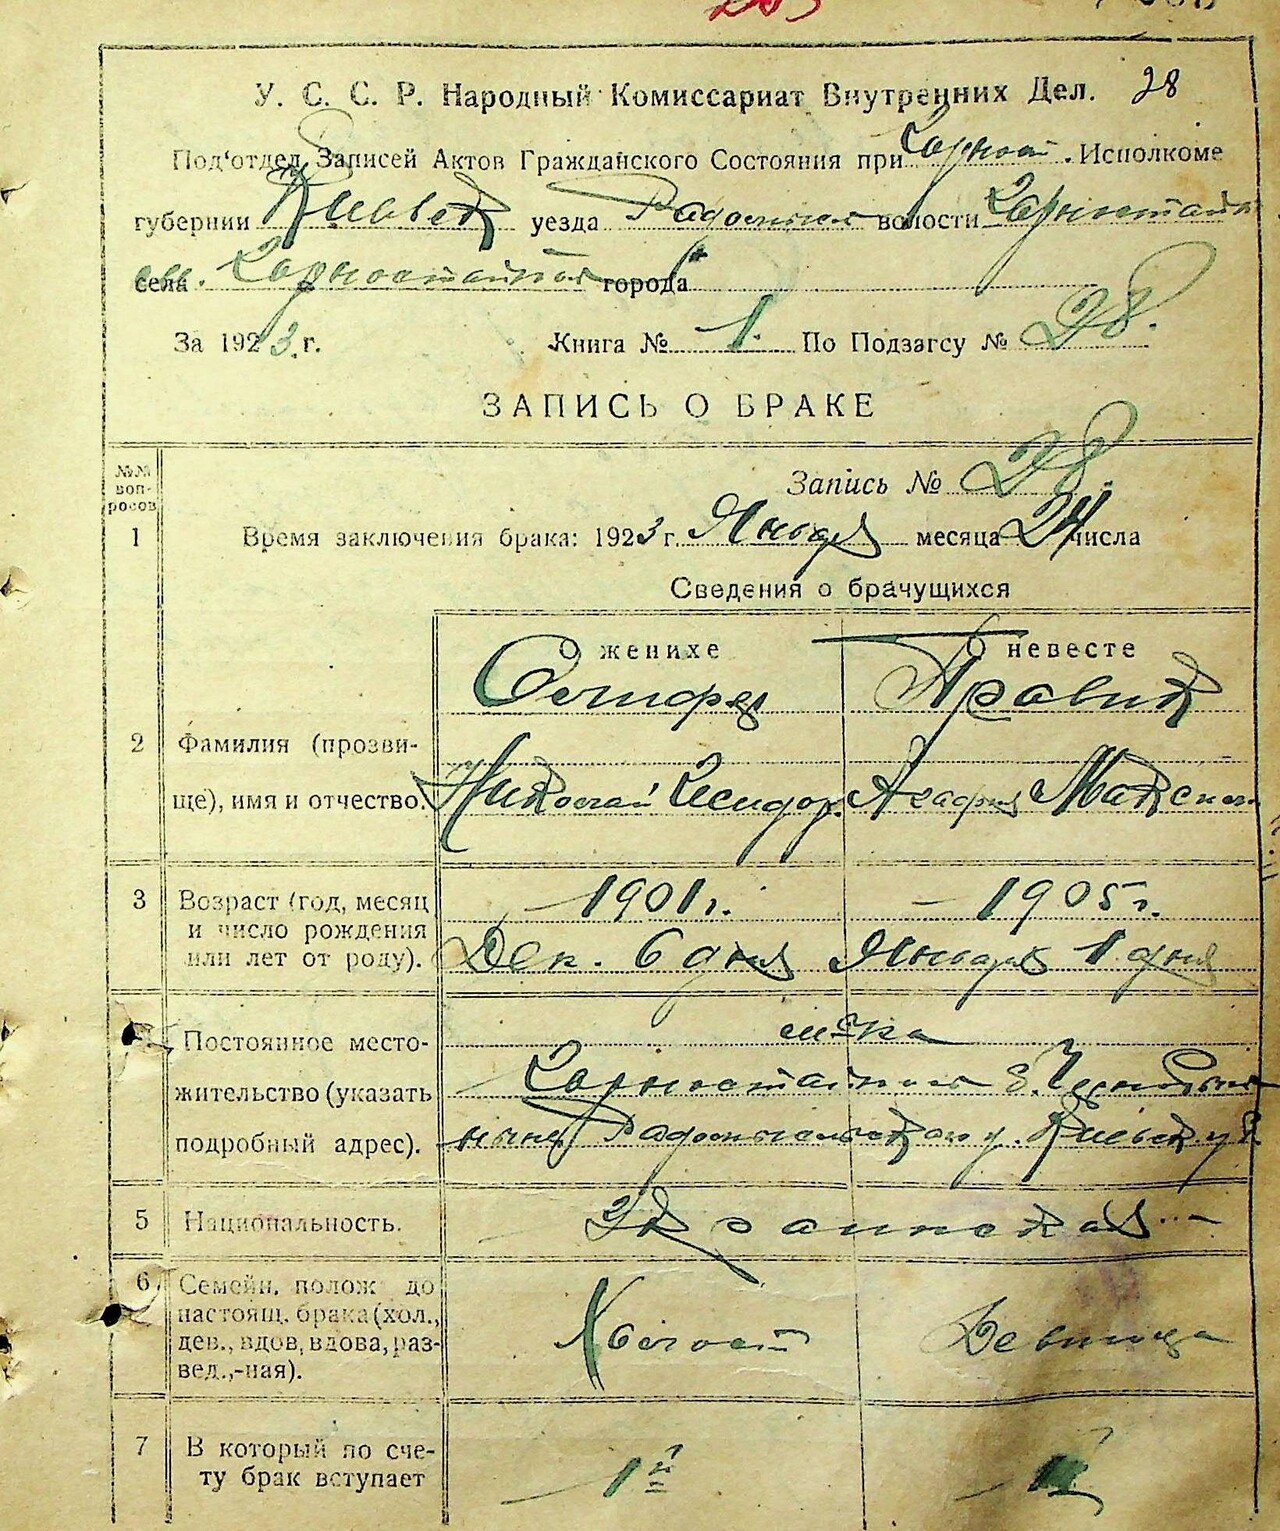 У. С. С. Р. Народный Комиссариат Внутренних Дел. 28
Под'отдел Записей Актов Гражданского Состояния при Исполкоме
губернии Киевск уезда волости
села города
За 1923 г. Книга № 1. По Подзагсу № 28.
ЗАПИСЬ О БРАКЕ
№№ вопросов
Запись № 28.
1 Время заключения брака: 1923 г. Января месяца 24 числа
Сведения о брачущихся
О женихе О невесте
2 Фамилия (прозви-
ще), имя и отчество. Николай Исидор. Агафия
3 Возраст (год, месяц
и число рождения
или лет от роду).
1901 г. 1905 г.
Дек. 6 дня Января 1 дня
Постоянное место-
жительство (указать
подробный адрес).
м-ка
ныне Радомысльск у. Киевск
5 Национальность. Украинская
6 Семейн. полож до
настоящ. брака (хол.,
дев., вдов, вдова, раз-
вед.,-ная).
Холост Девица
7 В который по сче-
ту брак вступает
1й